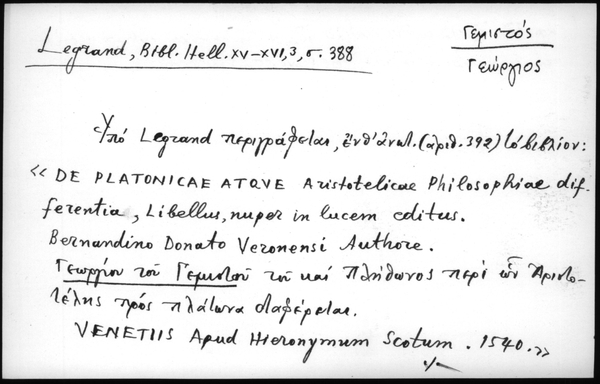 Legrand, Bibl. Hell. XV–XVI, 3, σ. 388
Γεμιστός
Γεώργιος
Ὑπό Legrand περιγράφεται, ἔνθ' ἀνωτ. (ἀριθ. 392) τό βιβλίον:
« DE PLATONICAE ATQVE Aristotelicae Philosophiae dif-
fferentia, Libellus, nuper in lucem editus.
Bernandino Donato Veronensi Authore.
Γεωργίου τοῦ Γεμιστοῦ τοῦ καί Πλήθωνος περί ὧν Ἀριστο-
τέλης πρός πλάτωνα διαφέρεται.
VENETIIS Apud Hieronymum Scotum. 1540.»
./.